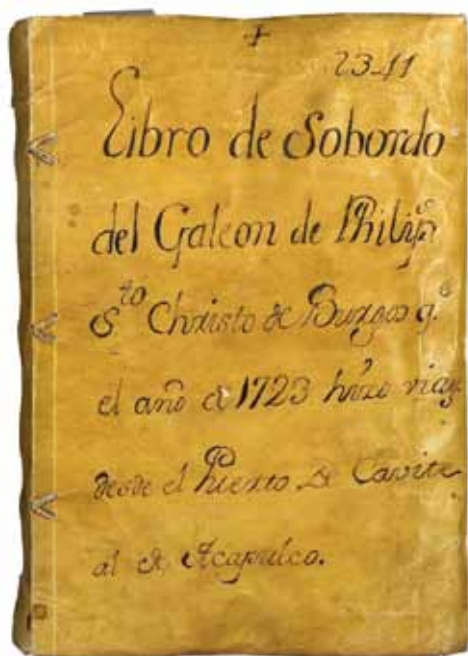 +
23-11
Libro de Sobordo
del Galeon de Philip.s
S.to Christo de Burgos q.e
el año de 1723 hizo viage
desde el Puerto de Cavite
al de Acapulco.